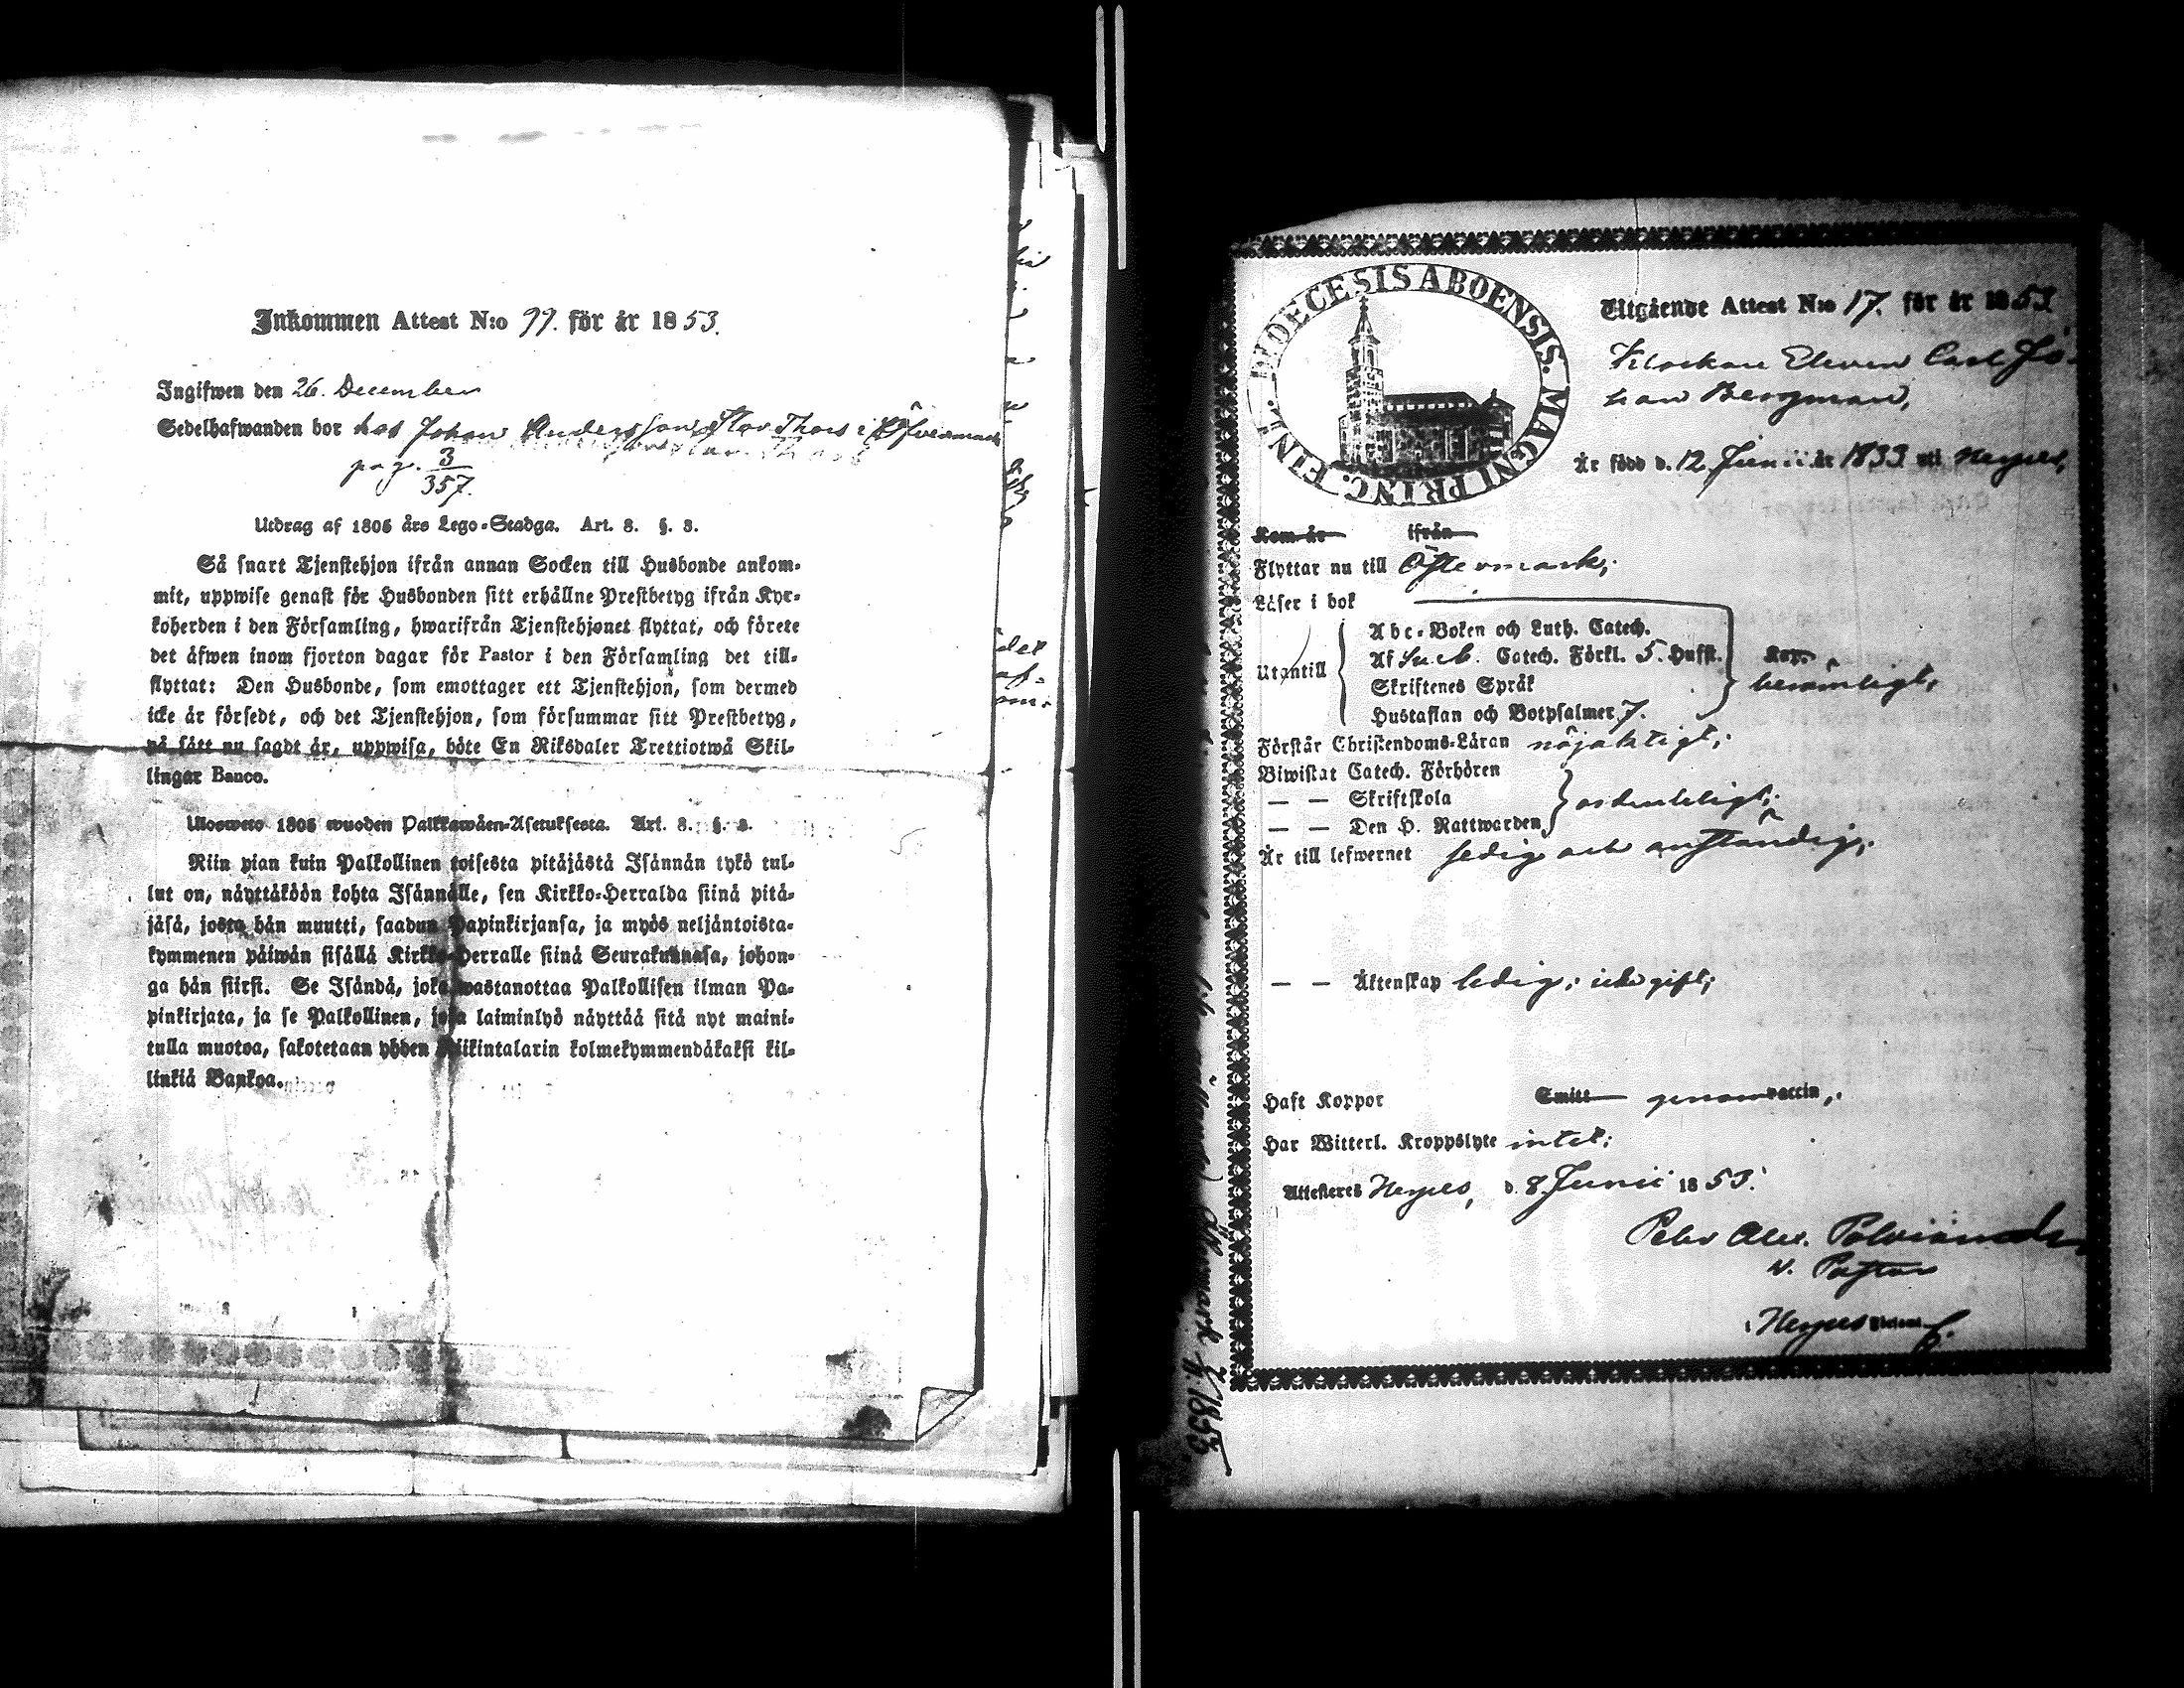 Inkommen Attest N:o 99. för år 1853.
Ingifwen den 26. December
Sedelhafwanden bor hos Johan Andersson Stor Thors i Öfvermark
pag. 3/357.
Utdrag af 1805 års Lego-Stadga. Art. 3. §. 3.
Så snart Tjenstehjon ifrån annan Socken till Husbonde ankom-
mit, uppwise genast för Husbonden sitt erhållne Prestbetyg ifrån Kyr-
koherden i den Församling, hwarifrån Tjenstehjonet flyttat, och förete
det äfwen inom fjorton dagar för Pastor i den Församling det till-
flyttat: Den Husbonde, som emottager ett Tjenstehjon, som dermed
icke är försedt, och det Tjenstehjon, som försummar sitt Prestbetyg,
på sätt nu sagdt är, uppwisa, böte En Riksdaler Trettiotwå Skil-
lingar Banco.
Ulosweto 1805 wuoden Palkkawäen-Asetuksesta. Art. 3. §. 3.
Niin pian kuin Palkollinen toisesta pitäjästä Isännän tykö tul-
lut on, näyttäköön kohta Isännälle, sen Kirkko-Herralda siinä pitä-
jäsä, josta hän muutti, saadun Papinkirjansa, ja myös neljäntoista-
kymmenen päiwän sisällä Kirkko-Herralle siinä Seurakunnasa, johon-
ga hän siirsi. Se Isändä, joka wastanottaa Palkollisen ilman Pa-
pinkirjata, ja se Palkollinen, joka laiminlyö näyttää sitä nyt maini-
tulla muotoa, sakotetaan yhden Riikintalarin kolmekymmendäkaksi kil-
linkiä Bankoa.
DIOECESIS ABOENSIS. MAGNI PRINC. FINL.
Utgående Attest N:o 17. för år 1853.
Klockare Eleven Carl Jo-
han Bergman,
Är född d. 12 Junii år 1833 uti Nerpes,
Kom år ifrån
Flyttar nu till Östermark;
Läser i bok
Utantill
Abc-Boken och Luth. Catech.
Af Sveb. Catech. Förkl. 5. Hufst.
Skriftenes Språk
Hustaflan och Botpsalmer 7.
berömligt,
Förstår Christendoms-Läran nöjaktigt;
Biwistat Catech. Förhören
— — Skriftskola
ordenteligt;
— — Den H. Nattwarden
Är till lefwernet sedig och anständig,
— — Äktenskap ledig; icke gift;
Haft Koppor Smitt genom vaccin,
Har Witterl. Kroppslyte intet;
Attesteres Nerpes, d. 8. Junii 1853.
Petr Alex.
v. Pastor
i Nerpes